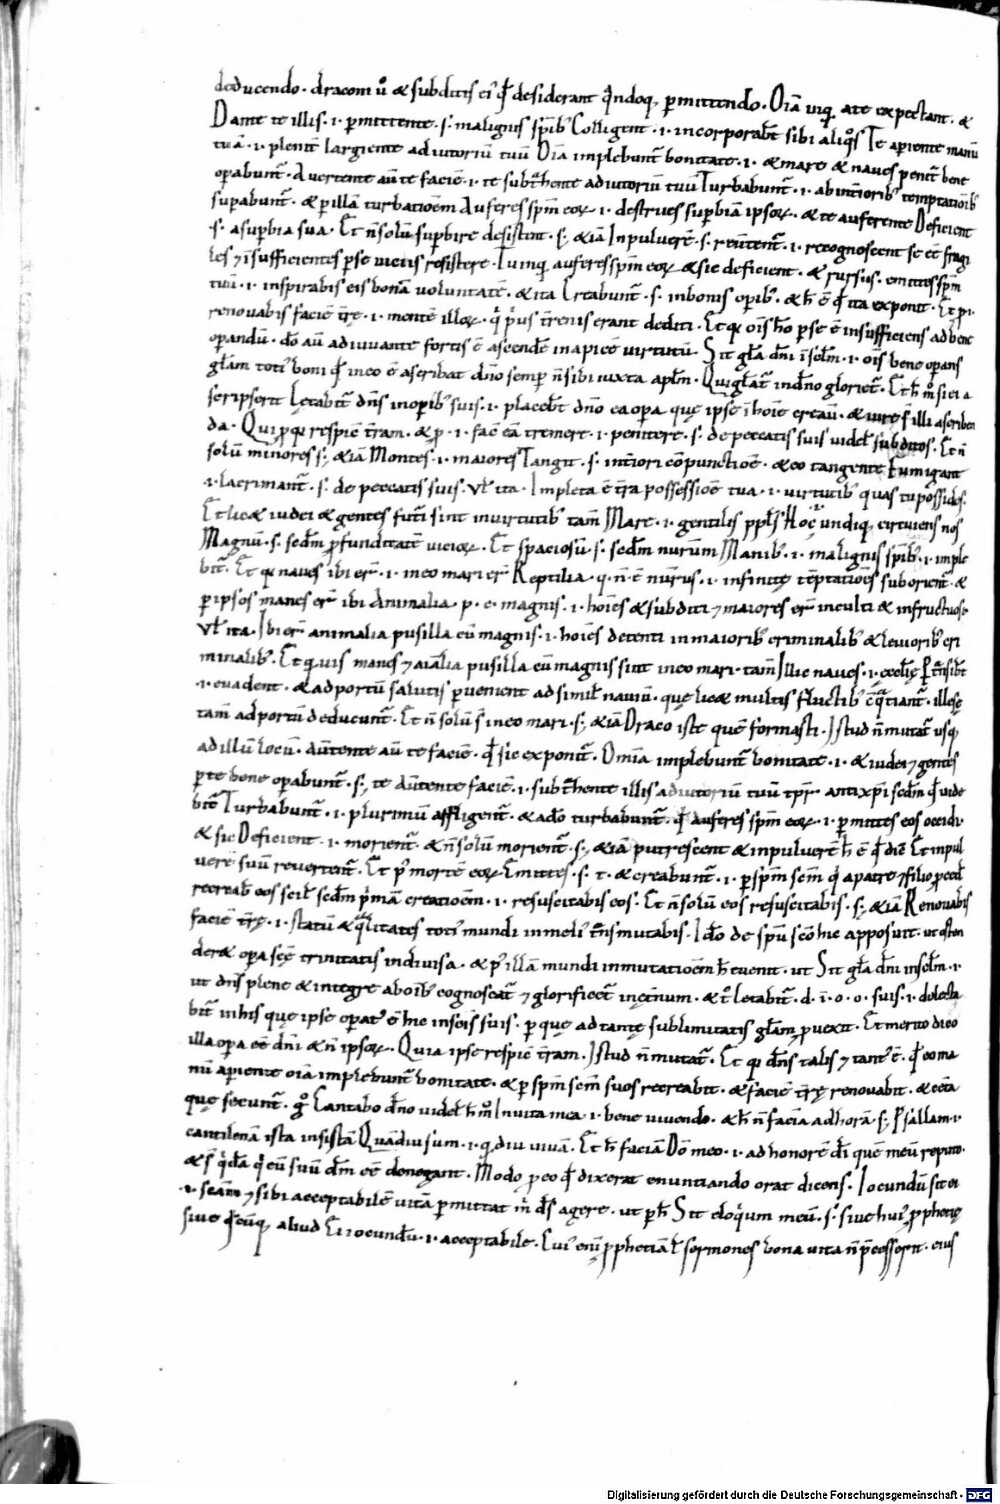 deducendo. draconi ů & subditis ei' qd̄ desiderant q̄ndoq; p̄mittendo. Oīa uiq; a te expectant. &
Dante te illis. i. p̄mittente. s. malignis sp̄ib' Colligent. i. incorporabt̄ sibi aliq̊s Te apiente manū
tuā. i. plenit̄ largiente adiutoriū tuū Oīa implebunt̄ bonitate. i. & mare & naues penit̄ bene
opabunt̄. Auertente aū te faciē. i. te subt̄hente adiutoriū tuū Turbabunt̄. i. ab int̄iorib' temptatiōib'
supabunt̄. & p illā turbatioēm Auferes sp̄m eoꝝ. i. destrues supbiā ipsoꝝ. & te auferente Deficient
s. a supbia sua. Et n̄ solū supbire desistent. s; & iā In puluerē. s. reūtent̄. i. recognoscent se eē fragi
les ⁊ īsufficientes p se uiciis resistere. Ininq; auferes sp̄m eoꝝ & sic deficient. & rursus. emittis sp̄m
tuū. i. inspirabis eis bonā uoluntatē. & ita Creabunt̄. s. in bonis opib'. & h̄ ē qd̄ ita exponit. Et p. i.
renouabis faciē t̄rę. i. mentē illoꝝ. q̄ p̓us t̄renis erant dediti. Et qa ois hō p se ē insufficiens ad bene
opandū. dō aū adiuuante fortis ē ascendē in apicē uirtutū. Sit gl̄a dn̄i ī sclm̄. i. ois bene opans
gl̄am toti' boni qd̄ in eo ē ascribat dn̄o semp n̄ sibi iuxta apl̄m. Qui gl̄at̄ in dn̄o gloriet̄. Et h̄ m̊ si ei a
scripserit Letabit̄ dn̄s in opib' suis. i. placebt̄ dn̄o ea opa quę ipse ī hoīe creaū. & iure illi ascriben
da. Qui p qa respic̄ t̄ram. & p. i. fac̄ eā tremere. i. penitere. s. de peccatis suis uidel̄ subditos. Et n̄
solū minores s; & iā Montes. i. maiores Tangit. s. int̄iori cōpunctioē. & eo tangente Fumigant
.i. lacrimant̄. s. de peccatis suis. Vl̄ ita. Impleta ē t̄ra possessioē tua. i. uirtutib' quas tu possides.
Et lic& iudei & gentes futi sint in uirtutib' tam̄ Mare. i. gentilis pplꝭs Hoc undiq; circuiens nos
Magnū. s. sedm̄ pfunditatē uicioꝝ. Et spaciosū. s. sedm̄ nurūm Manib'. i. malignis sp̄ib'. i. imple
bit̄. Et qa naues ibi er̄. i. in eo mari er̄ Reptilia. q. n̄ ē nūrus. i. infinitę tēptatioēs suborient̄. &
p ipsos manes er̄ ibi Animalia. p. c. magnis. i. hoīes & subditi ⁊ maiores er̄ inculti & infructuosi.
Vl̄ ita. Ibi er̄ animalia pusilla cū magnis. i. hoīes detenti in maiorib' criminalib' & leuiorib' cri
minalib'. Et q. uis manes ⁊ aīalia pusilla cū magnis sint in eo mari. tam̄ Illic naues. i. ecclię Pt̄nsibt̄
.i. euadent. & ad portū salutis p uenient ad simil̄ nauiū. quę lic& multis fluctib' c̄q̄tiant̄. illesę
tam̄ ad portū deducunt̄. Et n̄ solū s̄ in eo mari. s; & iā Draco iste quē formasti. Istud n̄ mutat̄ usq;
ad illū locū. Aūtente aū te faciē. qd̄ sic exponit̄. Omīa implebunt̄ bonitate. i. & iudei ⁊ gentes
p te bene opabunt̄. s; te aūtente faciē. i. subt̄hente illis adiutoriū tuū tp̄r antixp̄i sedm̄ qd̄ uide
bit̄ Turbabunt̄. i. plurimū affligent̄. & adō turbabunt̄. qd̄ Auferes sp̄m eoꝝ. i. p mittes eos occidi.
& sic Deficient. i. morient̄. & n̄ solū morient̄. s; & iā putrescent & in puluerē h̄ ē qd̄ dic̄ Et in pul
uerē suū reuertent̄. Et p' mortē eoꝝ. Emittes. s. t. & creabunt̄. i. p sp̄m scm̄ q̄ a patre ⁊ filio pced̄
recreab' eos scil̄ sedm̄ p̓mā creatioēm. i. resuscitabis eos. Et n̄ solū eos resuscitabis. s; & iā Renouabis
faciē t̄rę. i. statū & q̄litates toti' mundi in meli' t̄nsmutabis. Idō de sp̄u scō hic apposuit. ut osten
der& opa scę trinitatis indiuisa. & p' illā mundi inmutatioēm h̄ euenit. ut Sit gl̄a dn̄i in sclm̄. i.
ut dn̄s plene & integre ab oīb' cognoscat̄ ⁊ glorificet̄ in et̄num. & t̊ letabit̄. d. ī. o. o. suis. i. delecta
bit̄ in his quę ipse opat' ē hic in scīs suis. p quę ad tantę sublimitatis gl̄am puexit. Et merito dico
illa opa eē dn̄i & n̄ ipsoꝝ. Quia ipse respic̄ t̄ram. Istud n̄ mutat̄. Et qa dn̄s talis ⁊ tant' ē. qd̄ eo ma
nū apiente oīa implebunt̄ bonitate. & p sp̄m scm̄ suos recreabit. & faciē t̄rę renouabit. & cet̄a
quę secunt̄. g̊ Cantabo dn̄o uidel̄ h̄ m̊ In uita mea. i. bene uiuendo. & h̄ n̄ faciā ad horā. s; Psallam. i.
cantilenā ista insistā Quādiu sum. i. q. diu uiuā. Et h̄ faciā Dō meo. i. ad honorē dī quē meū reputo.
& s̄ q̓dā q̓ eū suū dm̄ eē denegant. Modo p eo qd̄ dixerat enuntiando orat dicens. Iocundū sit ei
.i. scām ⁊ sibi acceptabilē uitā p mittat m̄ ds̄ agere. ut p h̄ Sit eloq̓um meū. s. siue hui' pphetię
siue q̄cūq; aliud Ei iocundū. i. acceptabile. Cui' eni pphetiā l̄ sermones bona uita n̄ p̄cesserit. eius